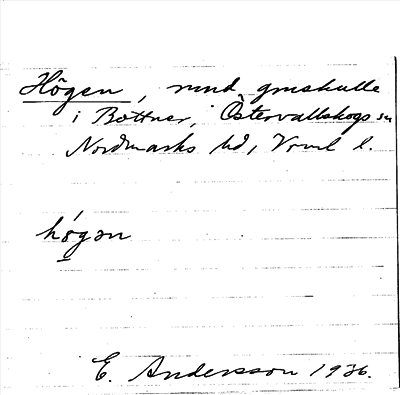 Högen, rund gruskulle
i Bottner, Östervallskogs sn
Nordmarks hd, Vrml l.
högən
E. Andersson 1936.